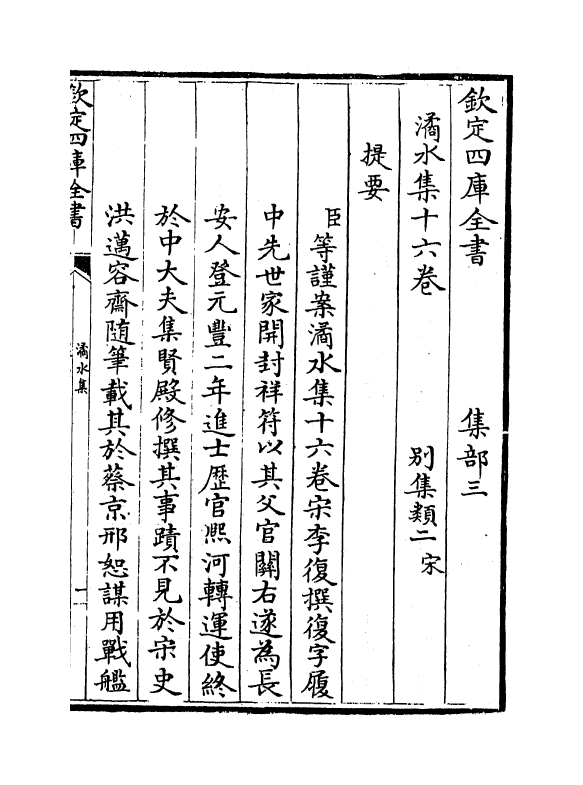 欽定四庫全書 集部三
潏水集十六卷 别集類二 宋
提要
臣等謹案潏水集十六卷宋李復撰復字履
中先世家開封祥符以其父官關右遂為長
安人登元豐二年進士歴官熙河轉運使終
於中大夫集賢殿修撰其事蹟不見於宋史
洪邁容齋随筆載其於蔡京邢恕謀用戰艦
欽定四庫全書
潏水集
一